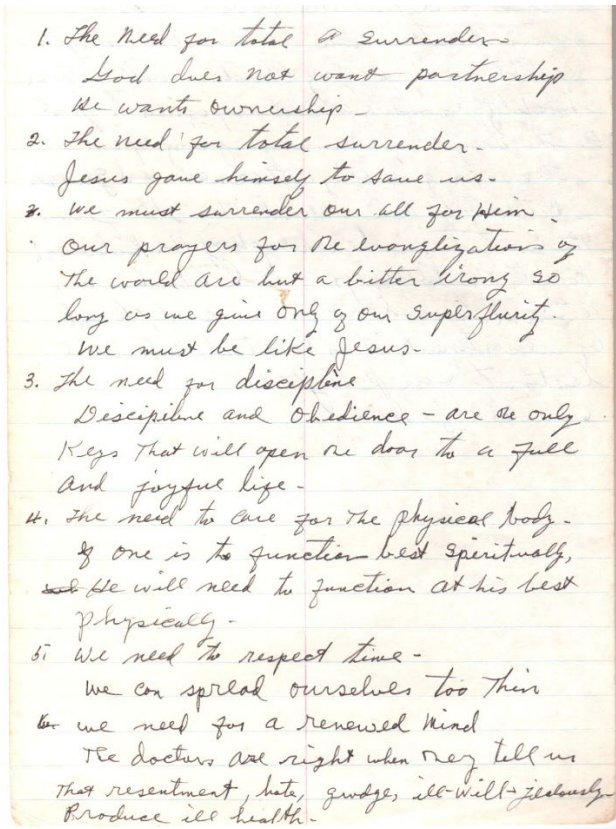 1. The Need for total a surrender
God does not want partnership
He wants ownership -
2. The need for total surrender.
Jesus gave himself to save us.
3. We must surrender our all for Him.
Our prayers for the evanglization of
The world are but a bitter irony so
long as we give only of our superfluity.
We must be like Jesus.
3. The need for discipline
Discipline and Obedience - are the only
Keys That will open the door to a full
and joyful life -
4. The need to care for The physical body -
If one is to function best Spiritually,
He will need to function at his best
physically -
5. We need to respect time -
We can spread ourselves too Thin
6. we need for a renewed Mind
The doctors are right when they tell us
That resentment, hate, grudge, ill-will + jealously
Produce ill health -